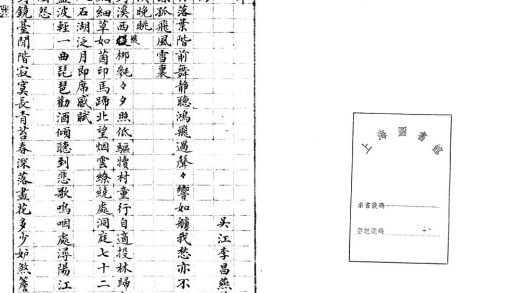 吳江李昌燕
落葉階前舞静聽鴻飛過聲々響如我愁亦不
孤飛風雪裏
晚眺
溪西柳毿々夕照低驅犢村童行自適投林歸
細草如茵印馬蹄北望烟雲繚繞處洞庭七十二
石湖泛月即席感賦
波輕一曲琵琶勸酒傾聽到悲歌嗚咽處潯陽江
怨
鏡臺閒階寂寞長青苔春深落盡花多少妒煞簷
上海圖書館
索書號碼
登記號碼